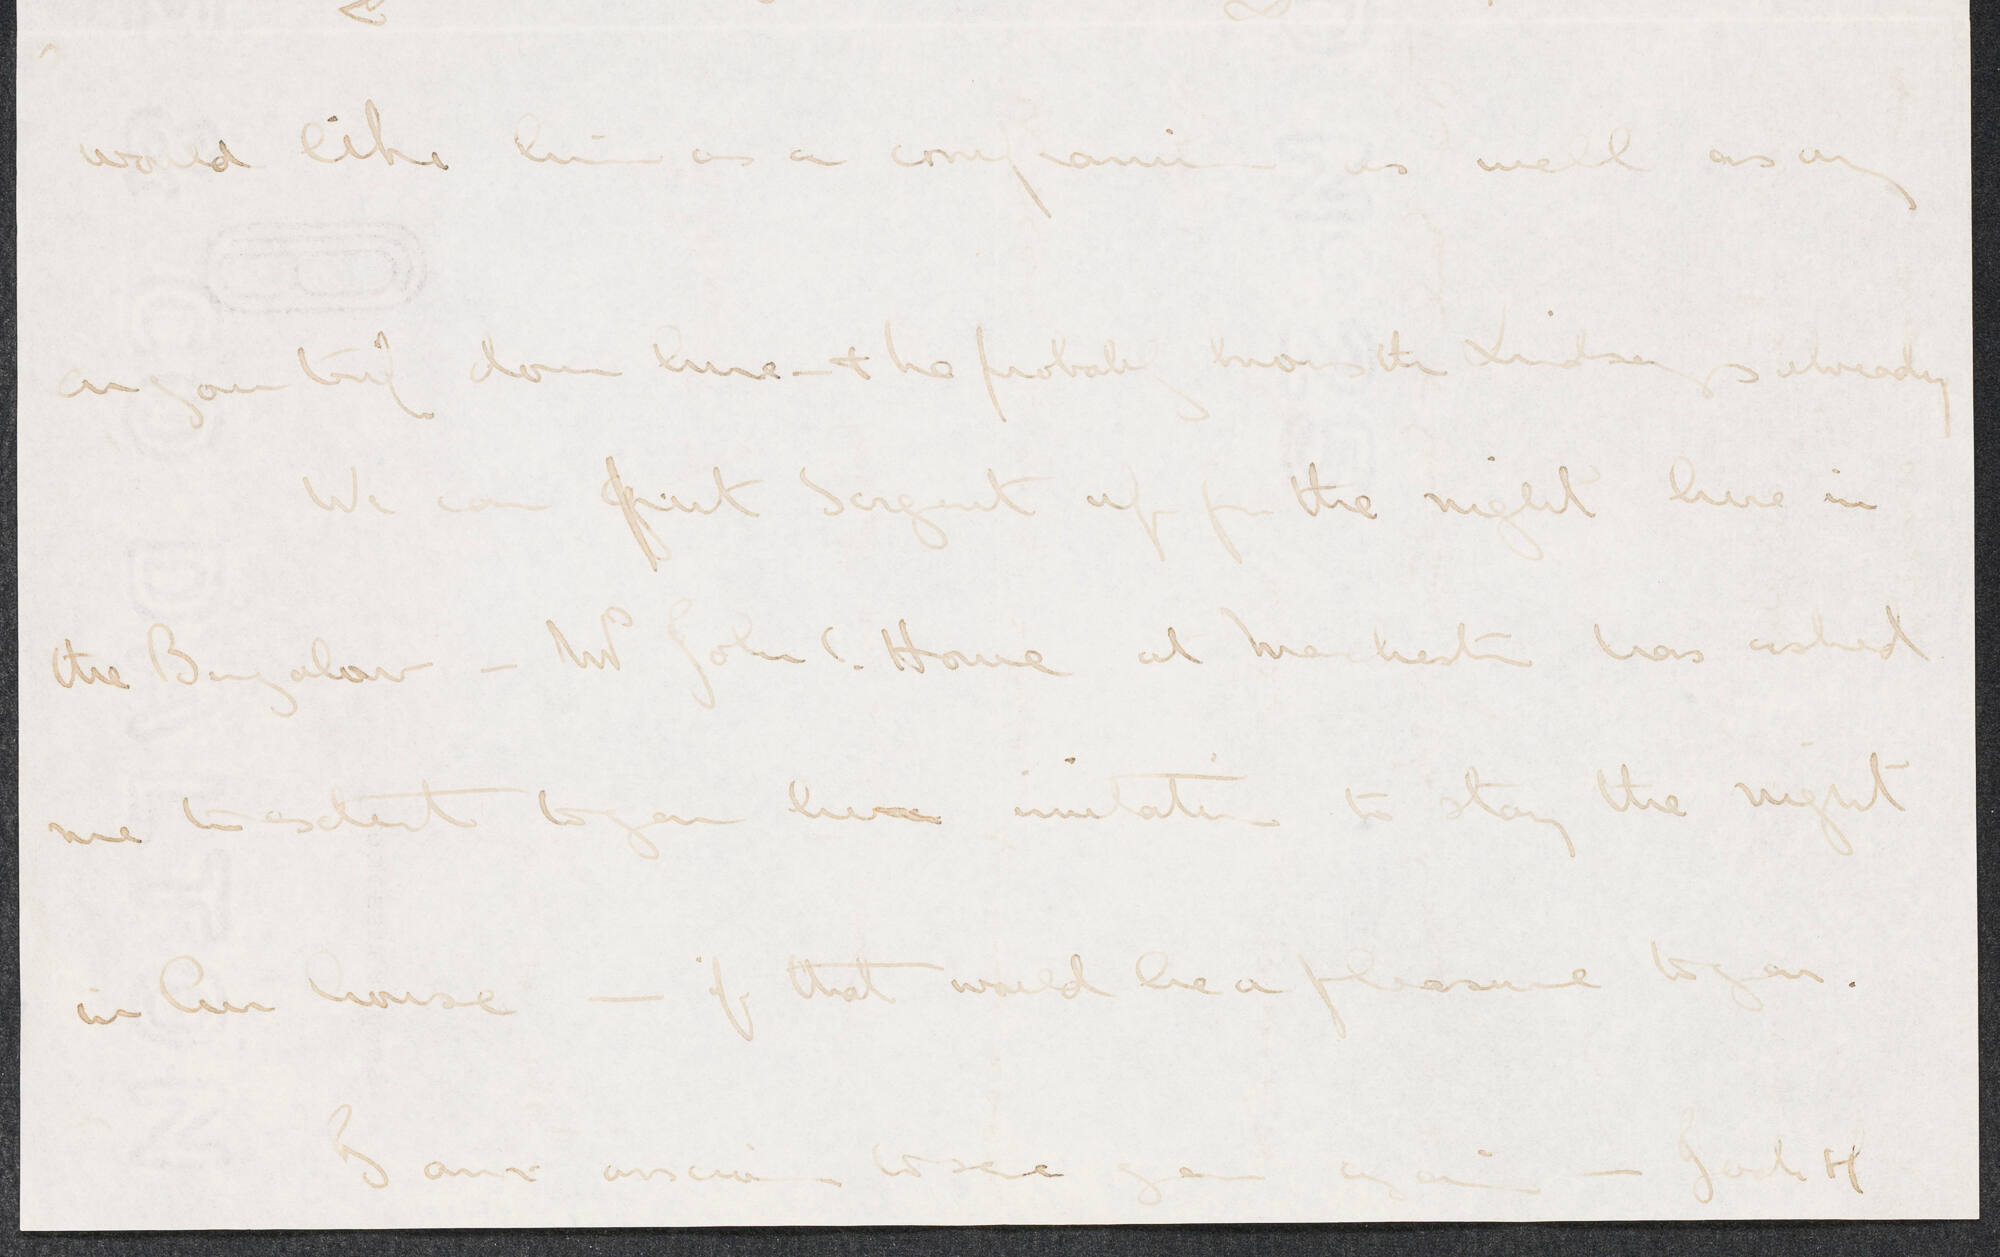 would like him as a companion as well as any
on your trip down here — & he probably knows the Lindseys already
We can put Sargent up for the night here in
the Bungalow — Mr John C. Howe at Manchester has asked
me to extend to you here invitation to stay the night
in his house — if that would be a pleasure to you.
I am anxious to see you again — Jack H